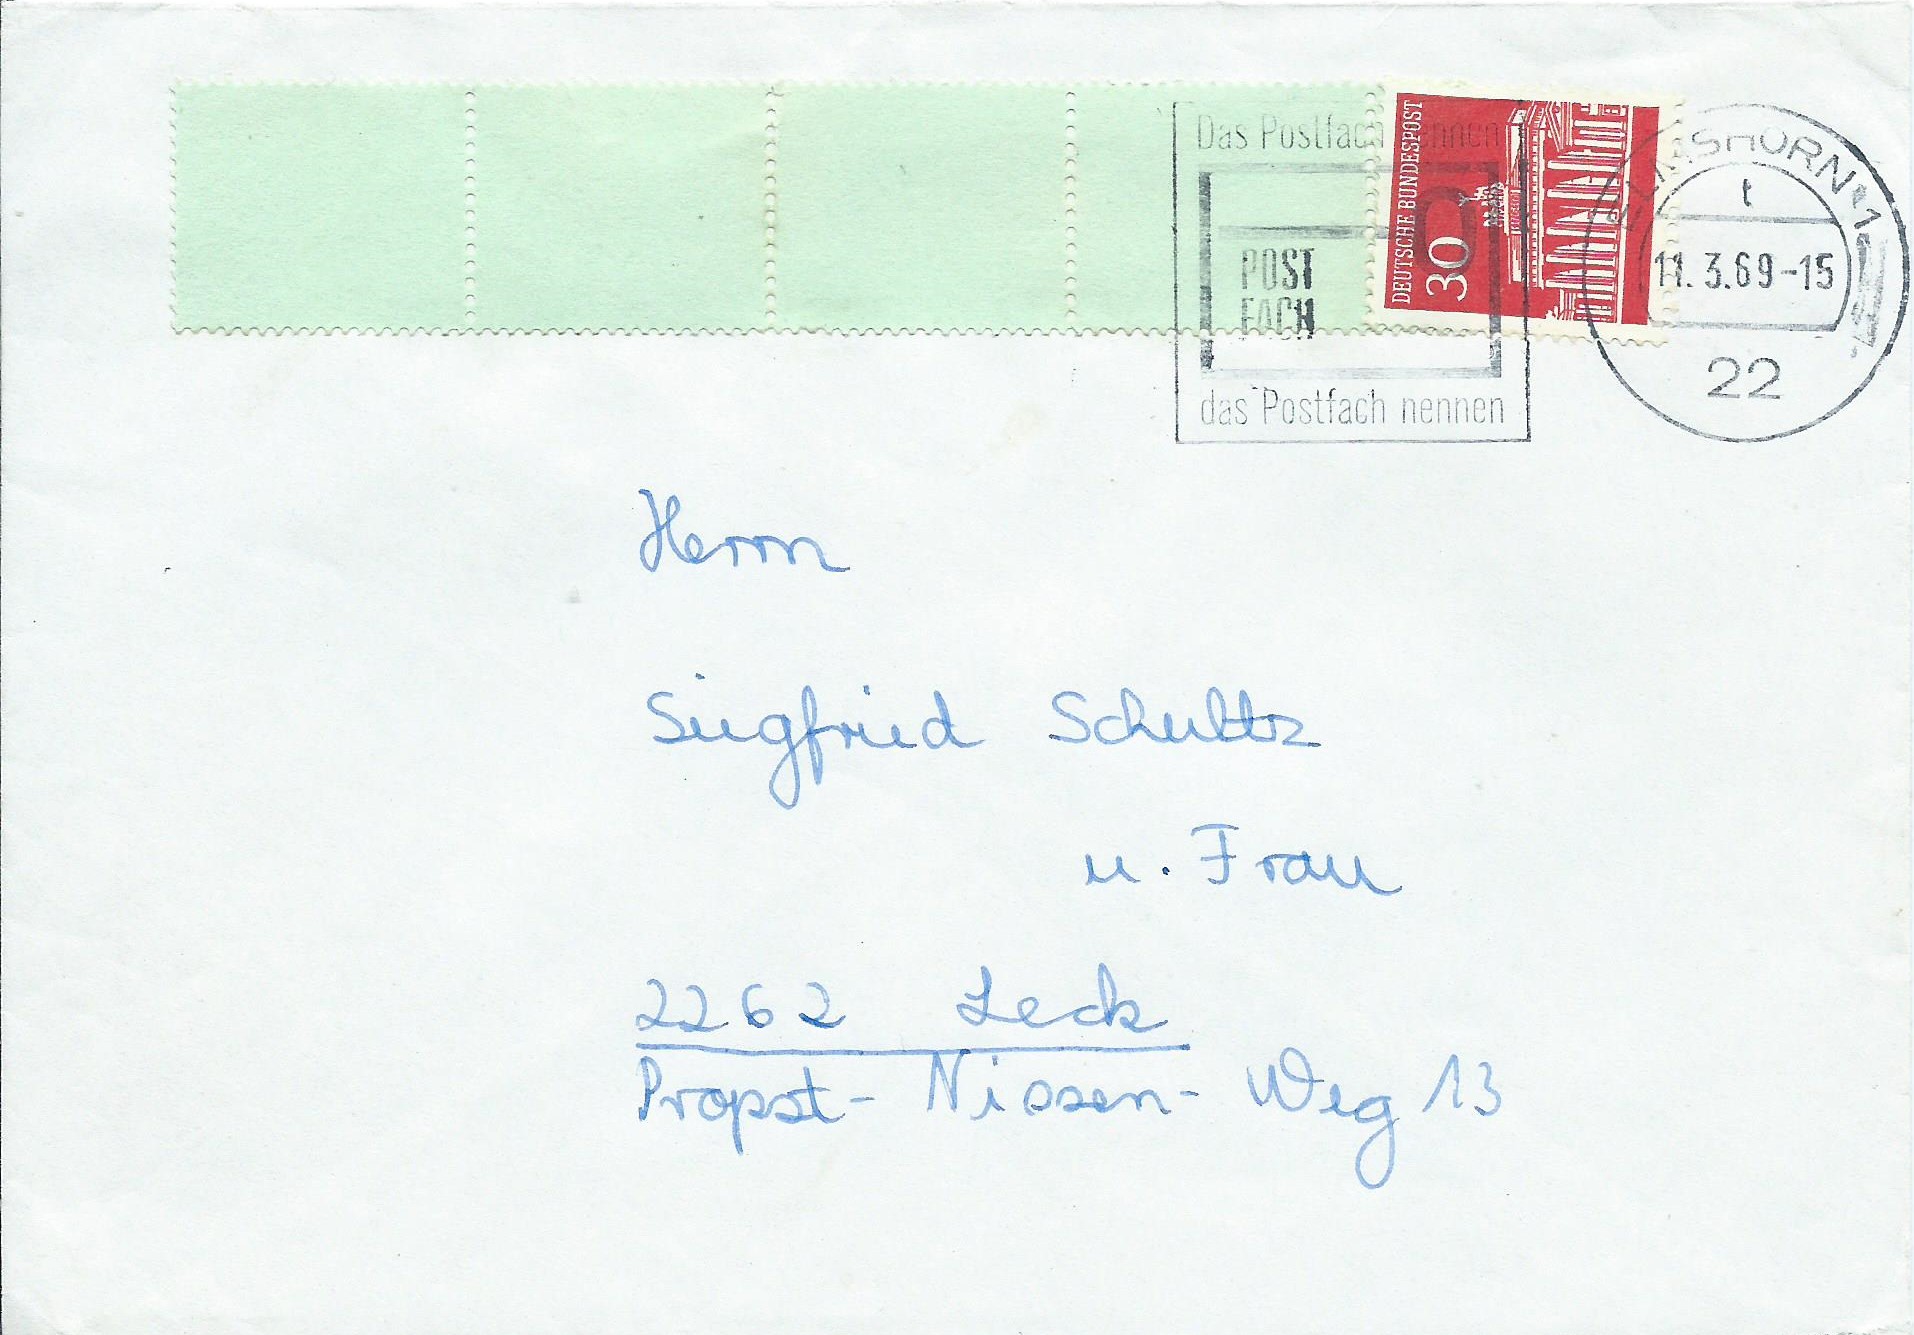 Das Postfach nennen
POST
FACH
das Postfach nennen
DEUTSCHE BUNDESPOST
30
ELMSHORN 1
t
11.3.69-15
22
Herrn
Siegfried Schultz
u. Frau
2262 Leck
Propst-Nissen-Weg 13